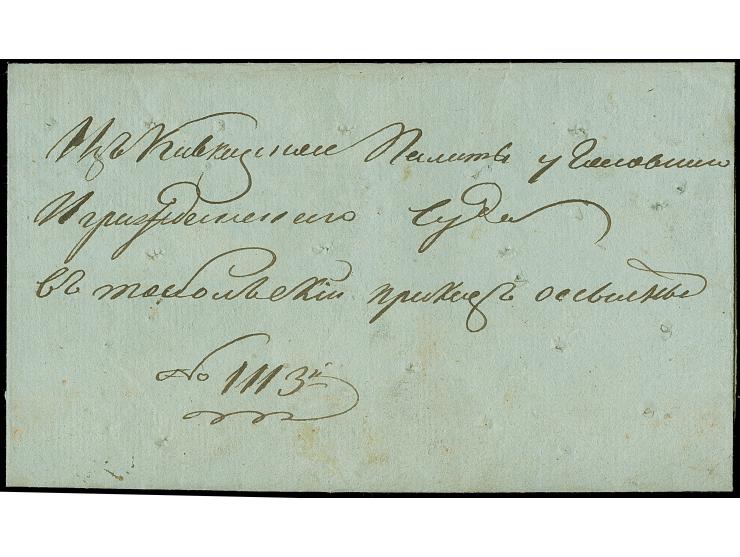 Изъ Кавказской Палаты уголовнаго
И гражданскаго Суда
въ тобольскій приказъ о ссыльныхъ
No 1113й